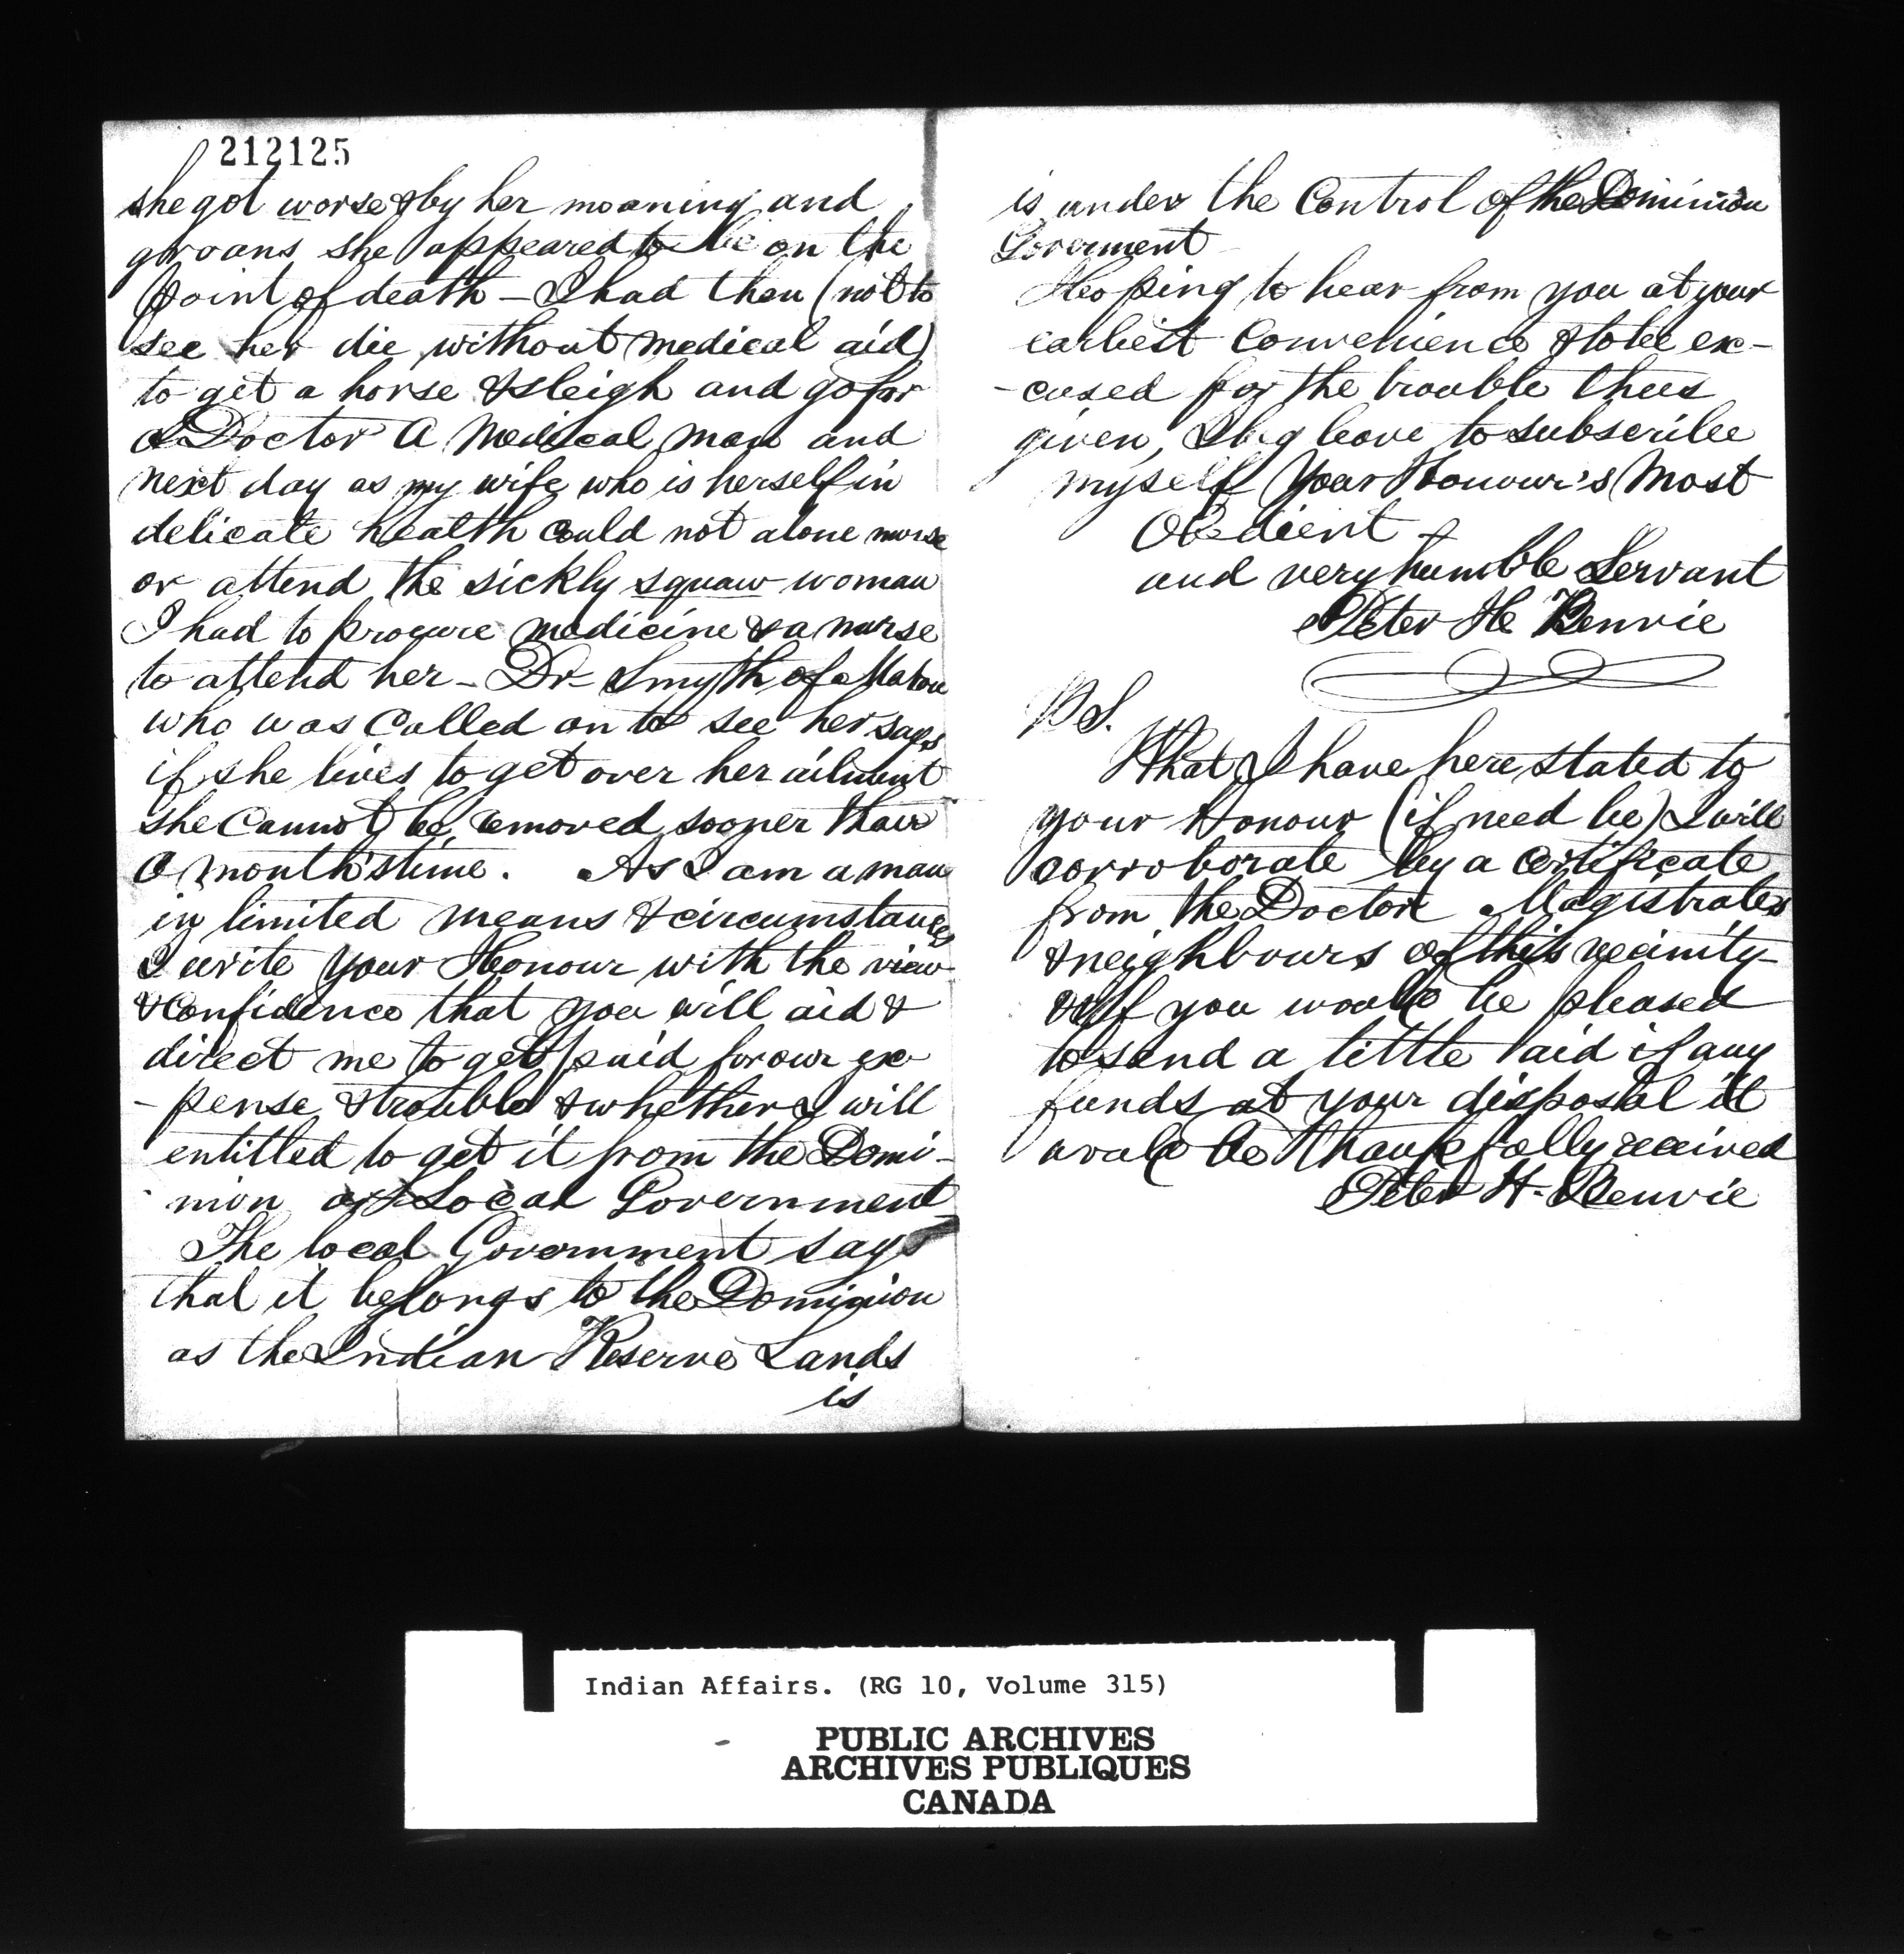 212125
she got worse & by her moaning and
groans she appeared to be on the
point of death – I had then (not to
see her die without medical aid)
to get a horse & sleigh and go for
a Doctor A Medical man and
next day as my wife who is herself in
delicate health could not alone nurse
or attend the sickly squaw woman
I had to procure medicine & a nurse
to attend her – Dr Smyth of Mabou
who was called on to see her says
if she lives to get over her ailment
she cannot be removed sooner than
a month's time. As I am a man
in limited means & circumstances
I write your Honour with the view
& confidence that you will aid &
direct me to get paid for our ex
- pense & trouble & whether I will
entitled to get it from the Domi-
nion or Local Government
The local Government says
that it belongs to the Dominion
as the Indian Reserve Lands
is
is under the Control of the Dominion
Goverment
Hoping to hear from you at your
earliest Convenience & to be ex-
- cused for the trouble thus
given, I beg leave to subscribe
myself Your Honour's Most
Obedient
and very humble Servant
Peter H Renvie
P S.
What I have here stated to
your Honour (if need be) I will
corroborate by a certificate
from the Doctor Magistrates
& neighbours of this vecinity
& If you would be pleased
to send a little aid if any
funds at your disposal it
would be thankfully received
Peter H. Renvie
Indian Affairs. (RG 10, Volume 315)
PUBLIC ARCHIVES
ARCHIVES PUBLIQUES
CANADA